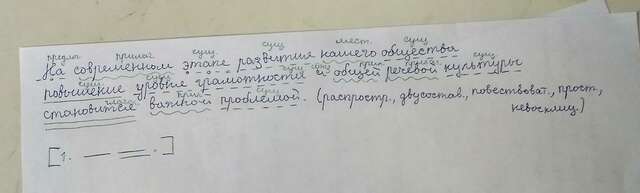 предлог прилаг. сущ. сущ. мест. сущ.
На современном этапе развития нашего общества
сущ. сущ. сущ. союз прил. прилаг. сущ.
повышение уровня грамотности и общей речевой культуры
глагол прил. сущ.
становится важной проблемой. (распростр., двусостав., повествоват., прост.,
невосклиц.)
[1. — = .]